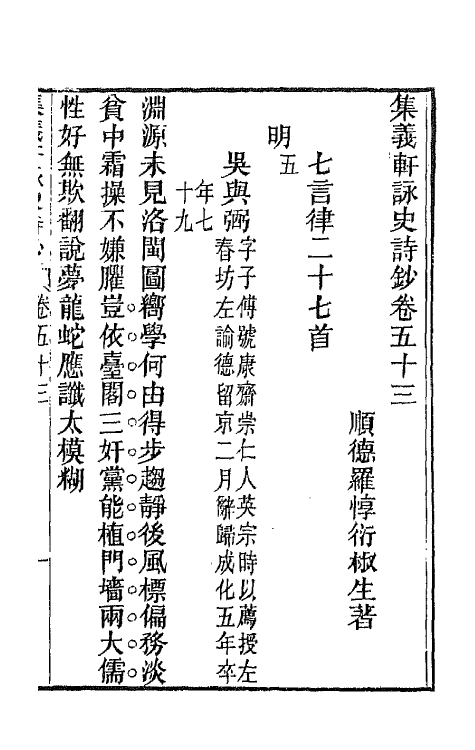 集義軒詠史詩鈔卷五十三
順德羅惇衍椒生著
七言律二十七首
明五
吳與弼字子傅號康齋崇仁人英宗時以薦授左
春坊左諭德留京二月辭歸成化五年卒
年七
十九
淵源未見洛閩圖嚮學何由得步趨靜後風標偏務淡
貧中霜操不嫌臞豈依臺閣三奸黨能植門墻兩大儒
性好無欺翻說夢龍蛇應讖太模糊
卷五十三
一